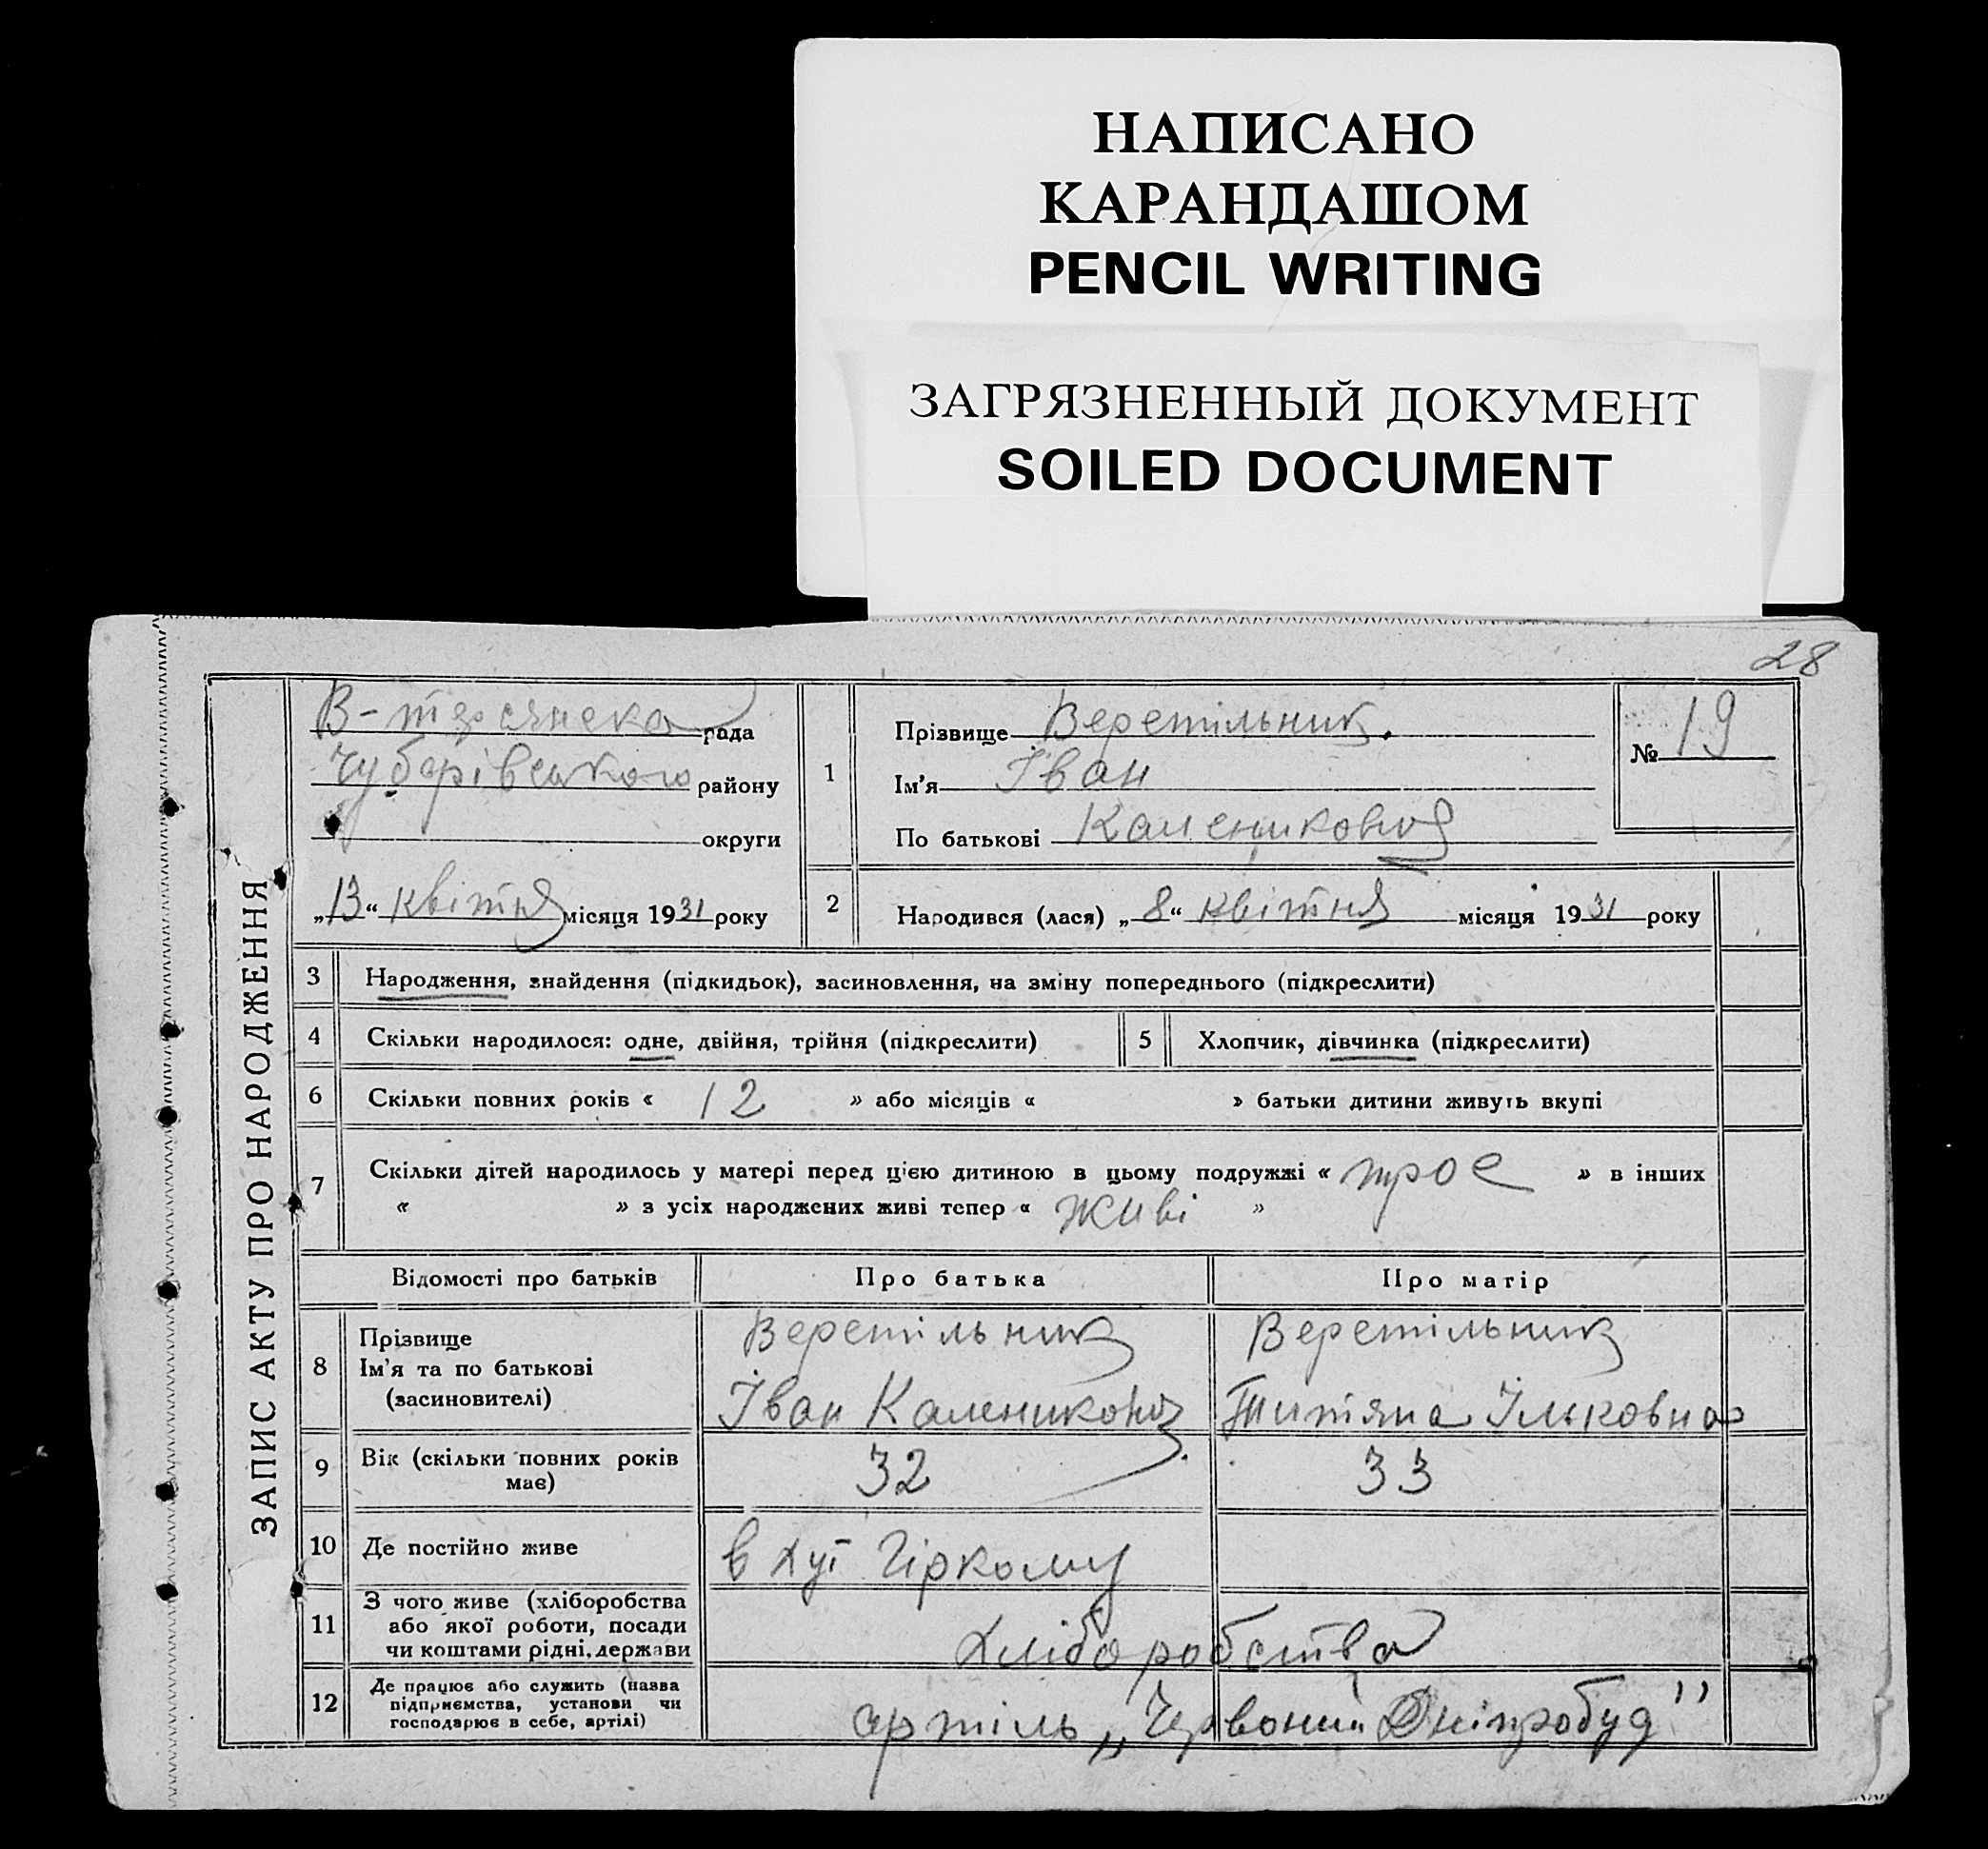 НАПИСАНО
КАРАНДАШОМ
PENCIL WRITING
ЗАГРЯЗНЕННЫЙ ДОКУМЕНТ
SOILED DOCUMENT
28
ЗАПИС АКТУ ПРО НАРОДЖЕННЯ
В-терсянська рада
Чубарівського району
округи
„13“ квітня місяця 1931 року
1
Прізвище Веретільник.
Ім'я Іван
По батькові Каленикович
№ 19
2 Народився (лася) „8“ квітня місяця 1931 року
3 Народження, знайдення (підкидьок), засиновлення, на зміну попереднього (підкреслити)
4 Скільки народилося: одне, двійня, трійня (підкреслити) 5 Хлопчик, дівчинка (підкреслити)
6 Скільки повних років « 12 » або місяців « » батьки дитини живуть вкупі
7 Скільки дітей народилось у матері перед цією дитиною в цьому подружжі « троє » в інших
« » з усіх народжених живі тепер « живі »
Відомості про батьків Про батька Про матір
8 Прізвище Веретільник Веретільник
Ім'я та по батькові
(засиновителі) Іван Каленикович Титяна Ільковна
9 Вік (скільки повних років має) 32 33
10 Де постійно живе в хут Гіркому
11 З чого живе (хліборобства
або якої роботи, посади
чи коштами рідні, держави хліборобства
12 Де працює або служить (назва
підприємства, установи чи
господарює в себе, артілі) артіль „Червоний Дніпробуд"